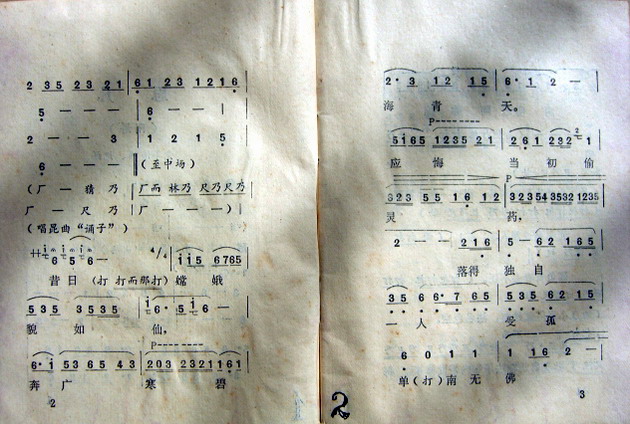 2 35 23 21 | 61 23 1216
5 — — — | 6 — — |
2 — — 3 | 1 2 1 5
6 — — — ‖(至中场)
(厂 — 猜 乃 | 厂而 林乃 尺乃尺乃
厂 — 尺 乃 | 厂 — — —)|
(唱昆曲“诵子”)
サ i i i 6 5 6— 4/4 | i i 5 6765
昔日 (打 打而那打) 嫦 娥
535 3535 | i 6· 5 i 6 —
貌 如 仙,
P--------
6·i 53 65 43 | 203 2321 161
奔 广 寒 碧
2
2
2·3 12 15 | 6·1 2 —
海 青 天。
P--------
5165 1235 21 | 261 232 2 1
应 悔 当 初 偷
P
323 55 16 12 | 32354 3532 1235
灵 药,
2 — — 216 | 5 — 62 165
落得 独 自
35 66·7 65 | 535 62 15
一 人 受 孤
6 0 1 1 | 1 16 2 —
单(打)南 无 佛
3